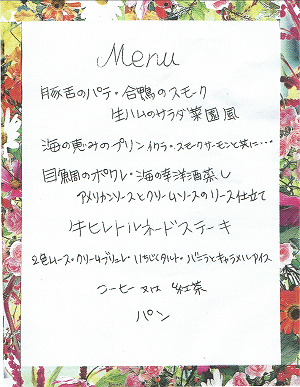 Menu
豚舌のパテ・合鴨のスモーク
生ハムのサラダ菜園風
海の恵みのプリン イクラ・スモークサーモンと共に…
目鯛のポワレ・海の幸洋酒蒸し
アメリカンソースとクリームソースのリース仕立て
牛ヒレトルネードステーキ
2色ムース・クリームブリュレ・いちじくタルト・バニラとキャラメルアイス
コーヒー 又は 紅茶
パン